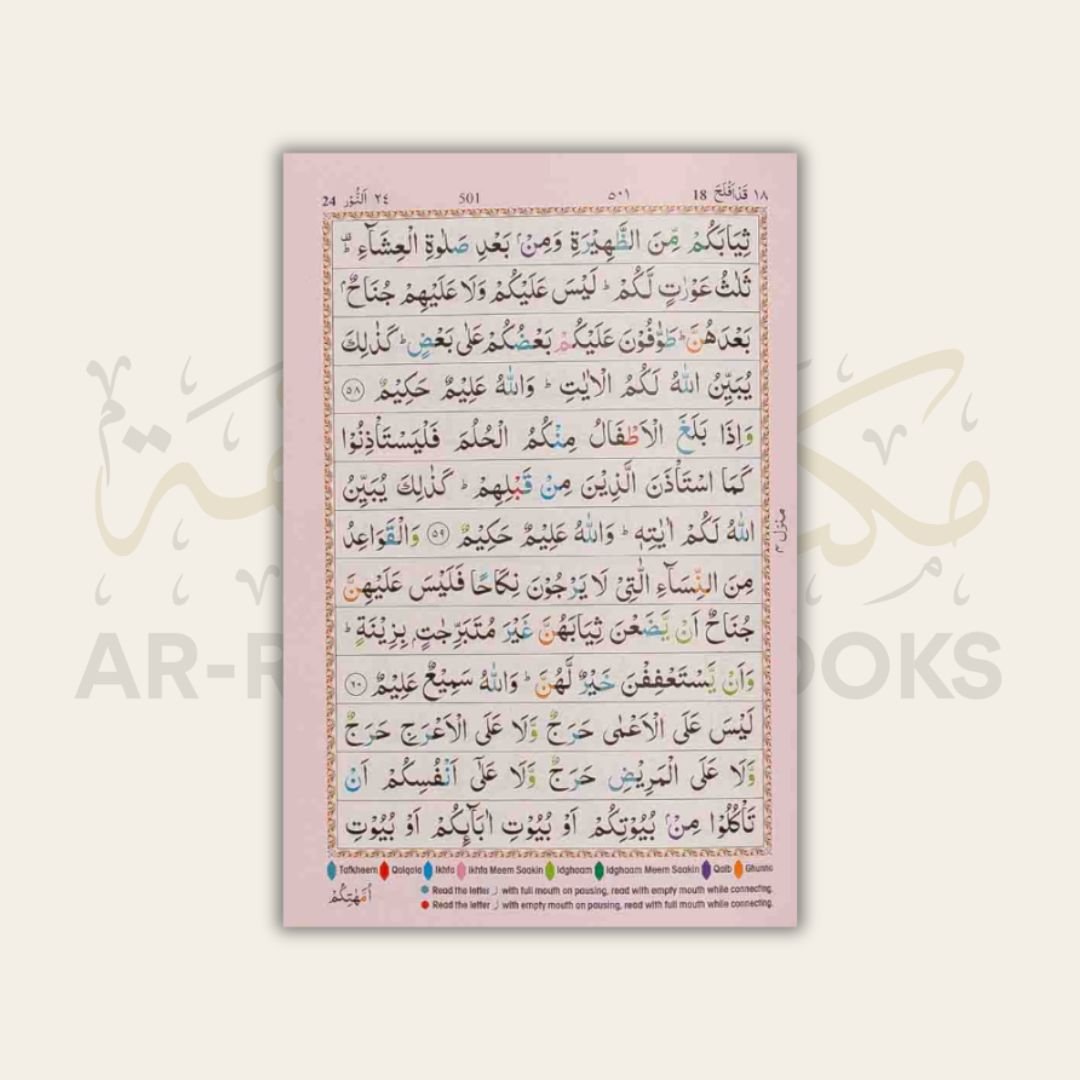 24 اَلنُّوْر ٢٤ 501 ٥٠١ 18 قَدْاَفْلَحَ ١٨
ثِيَابَكُمْ مِّنَ الظَّهِيْرَةِ وَمِنْۢ بَعْدِ صَلٰوةِ الْعِشَآءِ ؕ
ثَلٰثُ عَوْرٰتٍ لَّكُمْ ؕ لَيْسَ عَلَيْكُمْ وَلَا عَلَيْهِمْ جُنَاحٌۢ
بَعْدَهُنَّ ؕ طَوّٰفُوْنَ عَلَيْكُمْ بَعْضُكُمْ عَلٰى بَعْضٍ ؕ كَذٰلِكَ
يُبَيِّنُ اللّٰهُ لَكُمُ الْاٰيٰتِ ؕ وَاللّٰهُ عَلِيْمٌ حَكِيْمٌ ٥٨
وَاِذَا بَلَغَ الْاَطْفَالُ مِنْكُمُ الْحُلُمَ فَلْيَسْتَاْذِنُوْا
كَمَا اسْتَاْذَنَ الَّذِيْنَ مِنْ قَبْلِهِمْ ؕ كَذٰلِكَ يُبَيِّنُ
اللّٰهُ لَكُمْ اٰيٰتِهٖ ؕ وَاللّٰهُ عَلِيْمٌ حَكِيْمٌ ٥٩ وَالْقَوَاعِدُ
مِنَ النِّسَآءِ الّٰتِيْ لَا يَرْجُوْنَ نِكَاحًا فَلَيْسَ عَلَيْهِنَّ
جُنَاحٌ اَنْ يَّضَعْنَ ثِيَابَهُنَّ غَيْرَ مُتَبَرِّجٰتٍۭ بِزِيْنَةٍ ؕ
وَاَنْ يَّسْتَعْفِفْنَ خَيْرٌ لَّهُنَّ ؕ وَاللّٰهُ سَمِيْعٌ عَلِيْمٌ ٦٠
لَيْسَ عَلَى الْاَعْمٰى حَرَجٌ وَّلَا عَلَى الْاَعْرَجِ حَرَجٌ
وَّلَا عَلَى الْمَرِيْضِ حَرَجٌ وَّلَا عَلٰٓى اَنْفُسِكُمْ اَنْ
تَاْكُلُوْا مِنْۢ بُيُوْتِكُمْ اَوْ بُيُوْتِ اٰبَآئِكُمْ اَوْ بُيُوْتِ
منزل ٤
Tafkheem Qalqala Ikhfa Ikhfa Meem Saakin Idghaam Idghaam Meem Saakin Qalb Ghunna
Read the letter ر with full mouth on pausing, read with empty mouth while connecting.
Read the letter ر with empty mouth on pausing, read with full mouth while connecting.
اُمَّهٰتِكُمْ